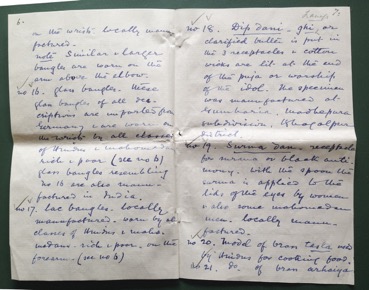 6.
on the wrist. locally manu-
factured.
note Similar & larger
bangles are worn on the
arm above the elbow.
no 16. glass bangles. these
glass bangles of all des-
criptions are imported from
Germany & are worn on
the wrist by all classes
of Hindus & mahomedans
rich & poor (see no 6)
glass bangles resembling
no 16 are also manu-
factured in India.
no 17. Lac bangles. locally
manufactured. worn by all
classes of Hindus & maho-
medans - rich & poor, on the
forearm - (see no 6)
7.
no 18. Dip dani - ghi, or
clarified butter is put in
the 5 receptacles & cotton
wicks are lit at the end
of the puja or worship
of the idol. The specimen
was manufactured at
Madhepura
subdivision, Bhagalpur
district.
no 19. Surma dan - receptacle
for surma or black anti-
mony. with the spoon the
surma is applied to the
lids of the eyes by women
& also some mahomedan
men. locally manu-
factured.
no 20. Model of brass tasla used
by Hindus for cooking food.
no 21. do. of brass